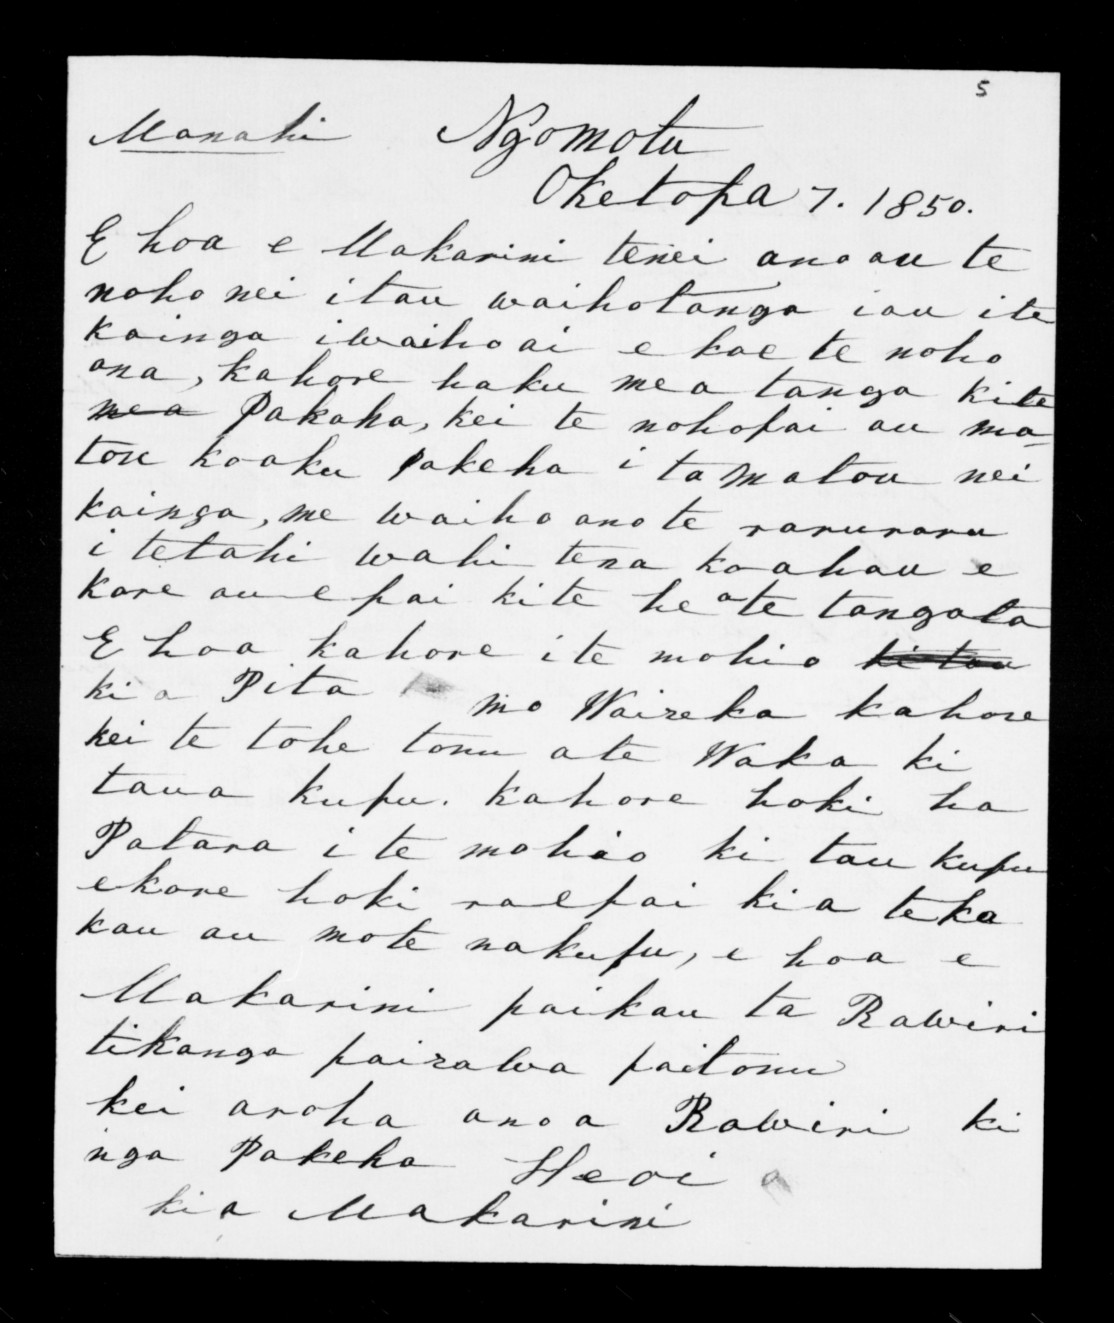 5
Manahi Ngomotu
Oketopa 7. 1850.
E hoa e Makarini tenei ano au te
noho nei i tau waihotanga iau ite
kainga iwaiho ai e koe te noho
ana, kahore haku mea tanga kite
mea Pakaha, kei te nohopai au ma-
tou koaku pakeha i ta matou nei
kainga, me waiho ano te raruraru
i tetahi wahi tena ko ahau e
kore au e pai kite he a te tangata
E hoa kahore i te mohio ki tau
ki a Pita mo Waireka kahore
kei te tohe tonu ate Waka ki
taua kupu. Kahore hoki ha
Patara i te mohio ki tau kupu
ekore hoki ra e pai ki a teka
kau au mote nakupu, e hoa e
Makarini paikau ta Rawiri
tikanga pairawa paitonu
kei aroha ano a Rawiri ki
nga Pakeha Heoi
ki a Makarini